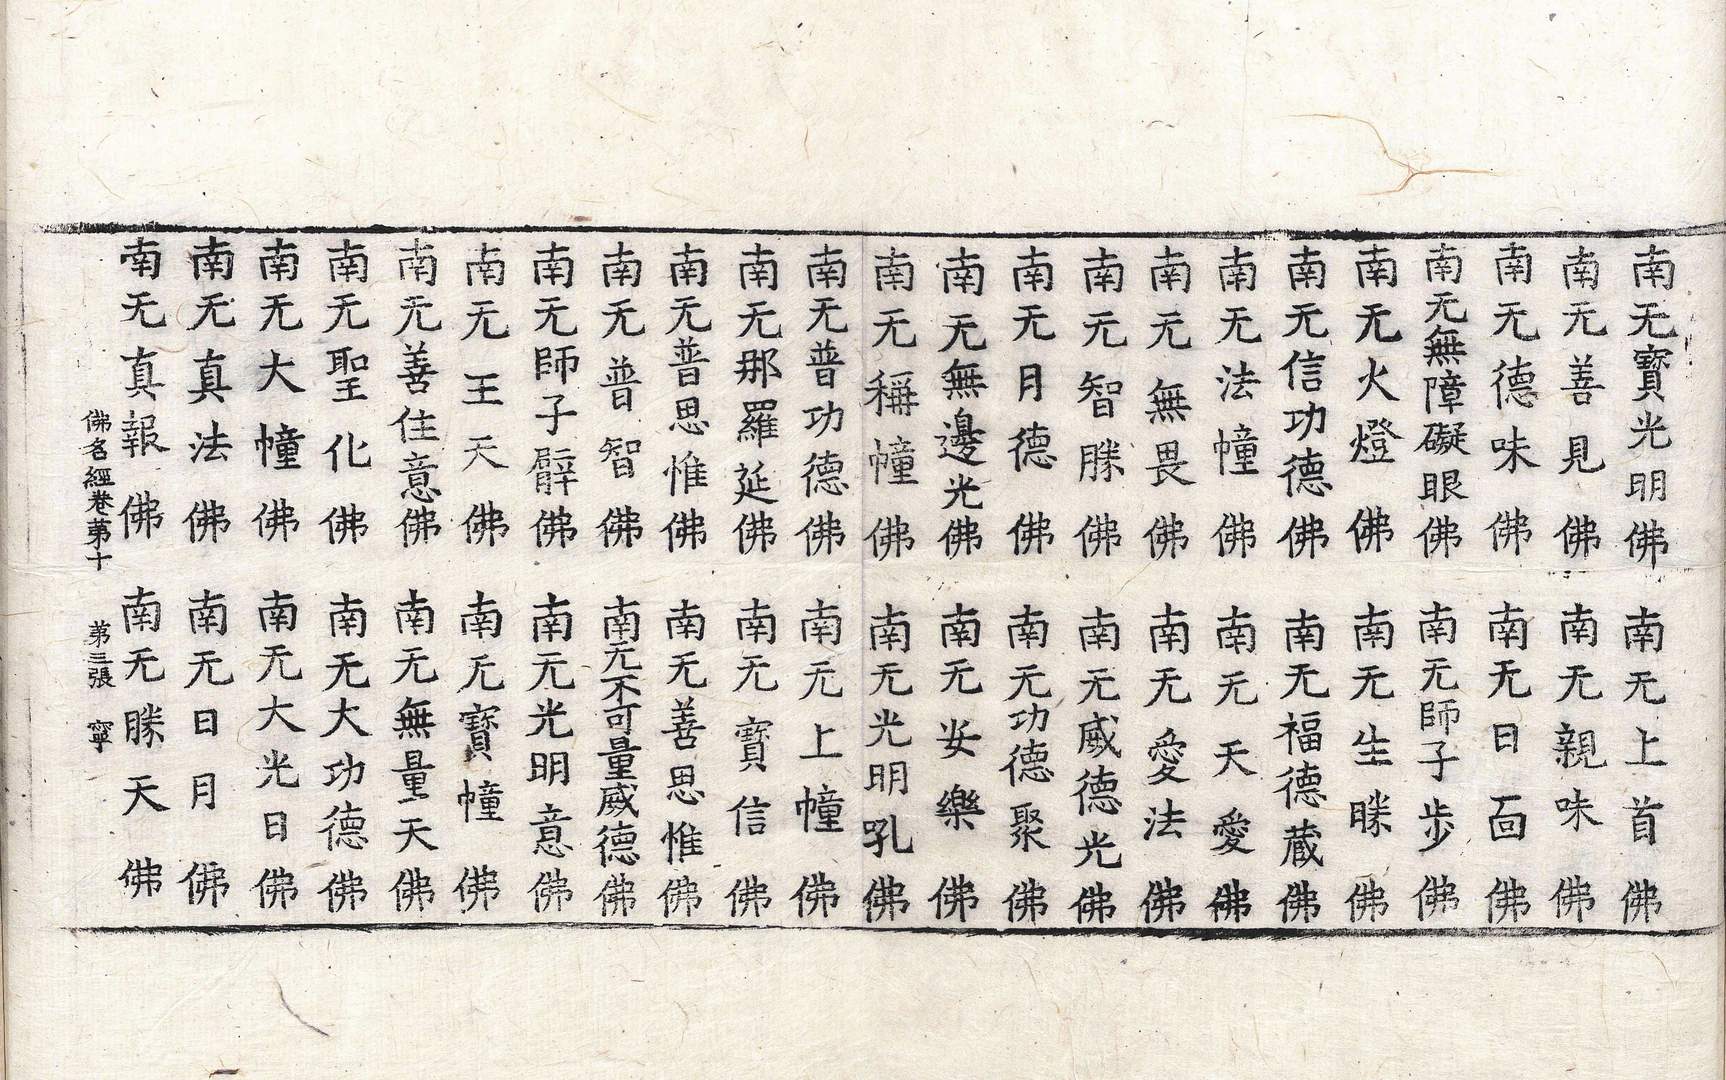 南无寶光明佛 南无上首佛
南无善見佛 南无親味佛
南无德味佛 南无日面佛
南无無障礙眼佛 南无師子步佛
南无火燈佛 南无生勝佛
南无信功德佛 南无福德蔵佛
南无法幢佛 南无天愛佛
南无無畏佛 南无愛法佛
南无智勝佛 南无威德光佛
南无月德佛 南无功德聚佛
南无無邊光佛 南无安樂佛
南无稱幢佛 南无光明吼佛
南无普功德佛 南无上幢佛
南无那羅延佛 南无寶信佛
南无普思惟佛 南无善思惟佛
南无普智佛 南无不可量威德佛
南无師子臂佛 南无光明意佛
南无王天佛 南无寶幢佛
南无善住意佛 南无無量天佛
南无聖化佛 南无大功德佛
南无大幢佛 南无大光日佛
南无真法佛 南无日月佛
南无真報佛 南无勝天佛
佛名經卷第十 第三張 寧